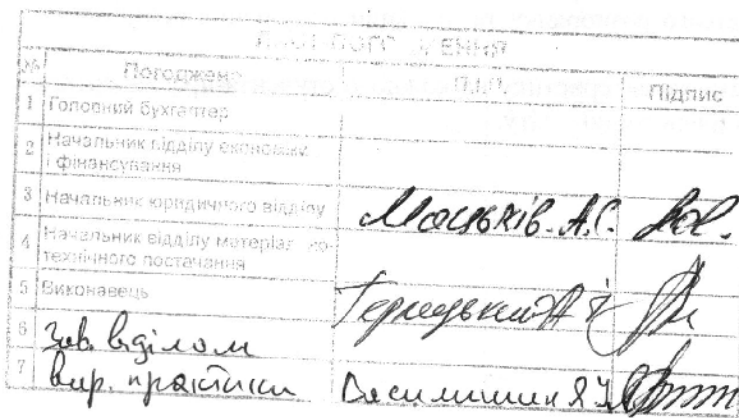 ЛИСТ ПОГОДЖЕННЯ
№ Погоджено П.І.П. Підпис
1 Головний бухгалтер
2 Начальник відділу економіки
і фінансування
3 Начальник юридичного відділу Мацьків. А.С.
4 Начальник відділу матеріально-
технічного постачання
5 Виконавець
6 Зав. відділом
7 вир. практики Василишин Я.І.